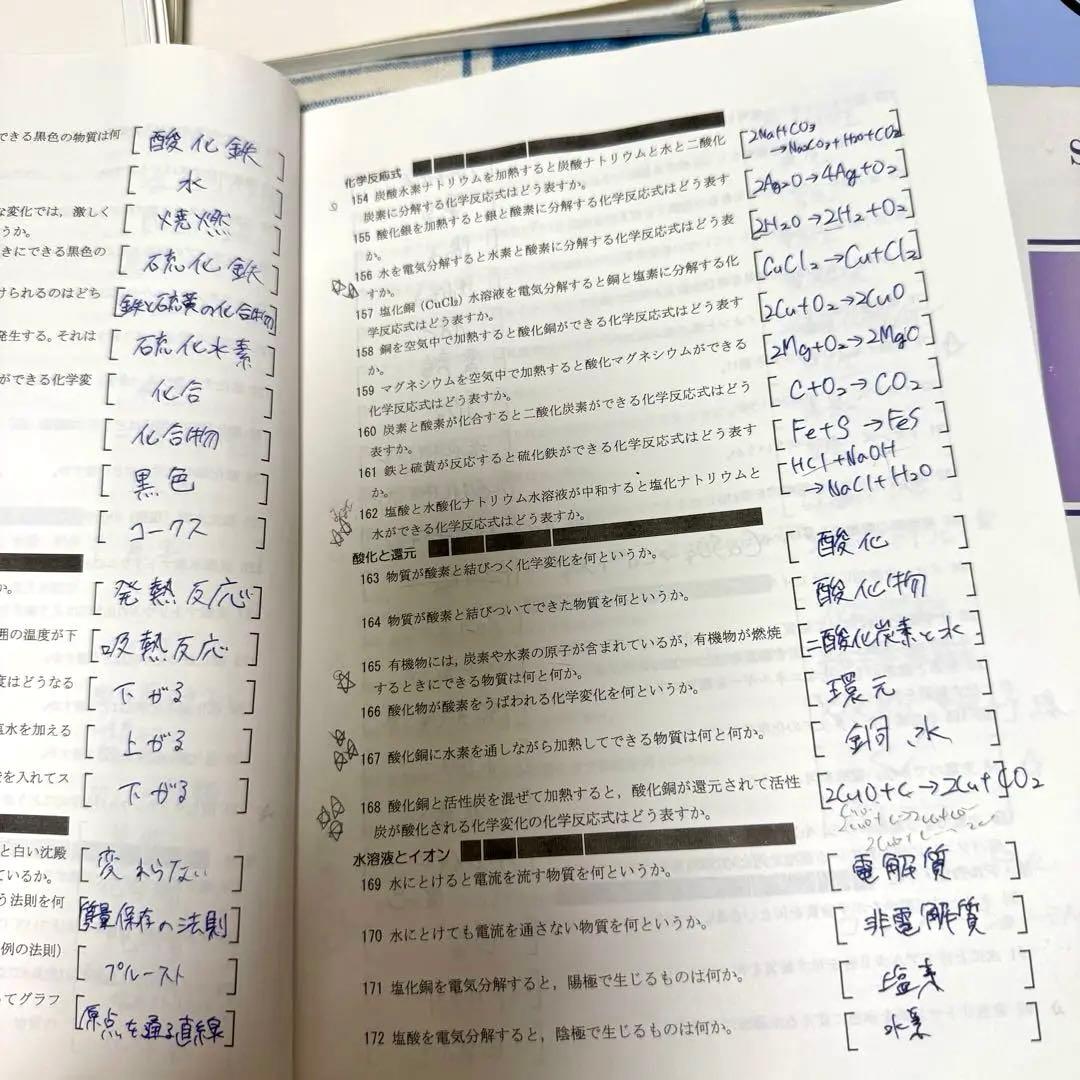 できる黒色の物質は何
[酸化鉄]
[水]
な変化では，激しく
うか。
[焼燃]
きにできる黒色の
[硫化鉄]
けられるのはどち
[鉄と硫黄の化合物]
発生する。それは
[硫化水素]
ができる化学変
[化合]
[化合物]
[黒色]
[コークス]
か。
[発熱反応]
囲の温度が下
[吸熱反応]
度はどうなる
[下がる]
塩水を加える
[上がる]
を入れてス
[下がる]
と白い沈殿
ているか。
[変わらない]
う法則を何
[質量保存の法則]
例の法則)
[プルースト]
てグラフ
[原点を通る直線]
化学反応式
154 炭酸水素ナトリウムを加熱すると炭酸ナトリウムと水と二酸化
炭素に分解する化学反応式はどう表すか。
[2NaHCO3
→Na2CO3+H2O+CO2]
155 酸化銀を加熱すると銀と酸素に分解する化学反応式はどう表す
か。
[2Ag2O→4Ag+O2]
156 水を電気分解すると水素と酸素に分解する化学反応式はどう表
すか。
[2H2O→2H2+O2]
157 塩化銅（CuCl₂）水溶液を電気分解すると銅と塩素に分解する化
学反応式はどう表すか。
[CuCl2→Cu+Cl2]
158 銅を空気中で加熱すると酸化銅ができる化学反応式はどう表す
か。
[2Cu+O2→2CuO]
159 マグネシウムを空気中で加熱すると酸化マグネシウムができる
化学反応式はどう表すか。
[2Mg+O2→2MgO]
160 炭素と酸素が化合すると二酸化炭素ができる化学反応式はどう
表すか。
[C+O2→CO2]
161 鉄と硫黄が反応すると硫化鉄ができる化学反応式はどう表す
か。
[Fe+S→FeS]
162 塩酸と水酸化ナトリウム水溶液が中和すると塩化ナトリウムと
水ができる化学反応式はどう表すか。
[HCl+NaOH
→NaCl+H2O]
酸化と還元
163 物質が酸素と結びつく化学変化を何というか。
[酸化]
164 物質が酸素と結びついてできた物質を何というか。
[酸化物]
165 有機物には，炭素や水素の原子が含まれているが，有機物が燃焼
するときにできる物質は何と何か。
[二酸化炭素と水]
166 酸化物が酸素をうばわれる化学変化を何というか。
[環元]
167 酸化銅に水素を通しながら加熱してできる物質は何と何か。
[銅、水]
168 酸化銅と活性炭を混ぜて加熱すると，酸化銅が還元されて活性
炭が酸化される化学変化の化学反応式はどう表すか。
[2CuO+C→2Cu+CO2]
水溶液とイオン
169 水にとけると電流を流す物質を何というか。
[電解質]
170 水にとけても電流を通さない物質を何というか。
[非電解質]
171 塩化銅を電気分解すると，陽極で生じるものは何か。
[塩素]
172 塩酸を電気分解すると，陰極で生じるものは何か。
[水素]
S